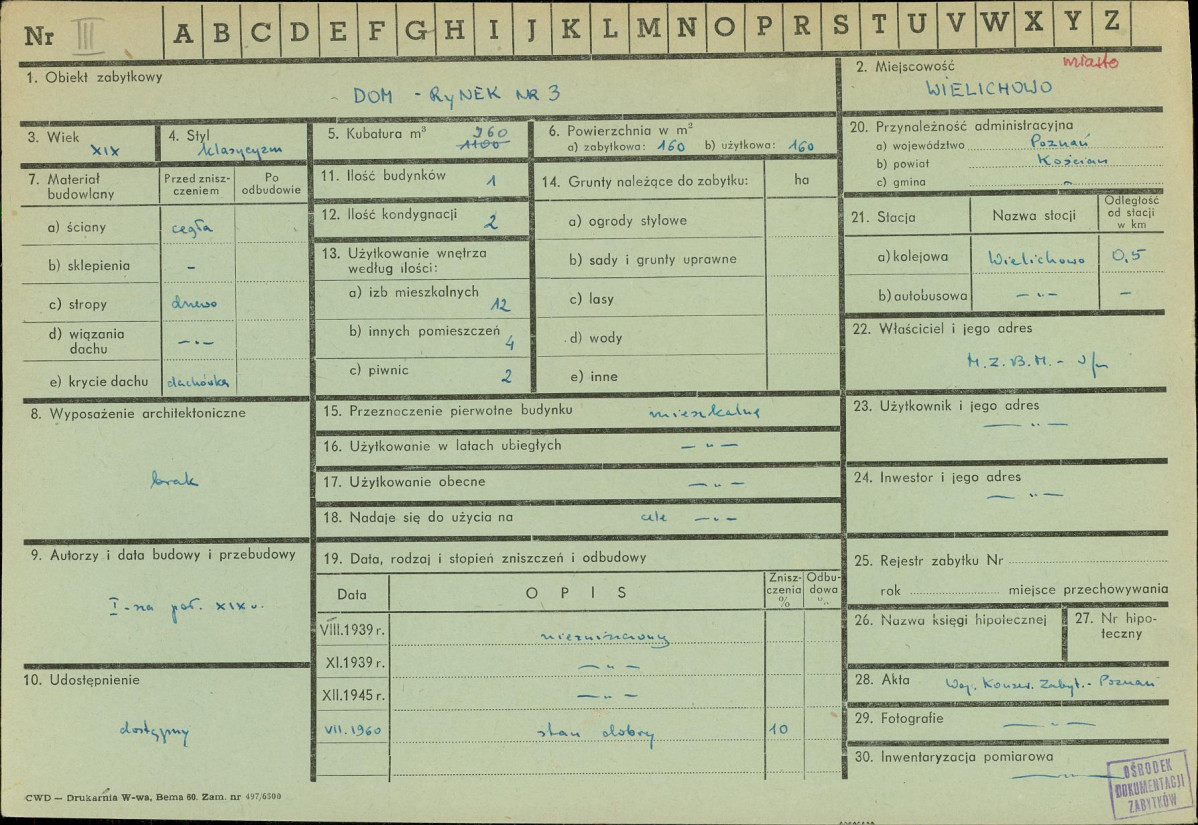 Nr III A B C D E F G H I J K L M N O P R S T U V W X Y Z
1. Obiekt zabytkowy
DOM - RYNEK NR 3
2. Miejscowość miasto
WIELICHOWO
3. Wiek
XIX
4. Styl
klasycyzm
5. Kubatura m³ 960
1100
6. Powierzchnia w m²
a) zabytkowa: 160 b) użytkowa: 160
20. Przynależność administracyjna
a) województwo Poznań
b) powiat Kościan
c) gmina -
7. Materiał budowlany
Przed znisz-
czeniem
Po
odbudowie
a) ściany cegła
b) sklepienia -
c) stropy drewo
d) wiązania
dachu —„—
e) krycie dachu dachówka
11. Ilość budynków 1
12. Ilość kondygnacji 2
13. Użytkowanie wnętrza
według ilości:
a) izb mieszkalnych 12
b) innych pomieszczeń 4
c) piwnic 2
14. Grunty należące do zabytku: ha
a) ogrody stylowe
b) sady i grunty uprawne
c) lasy
d) wody
e) inne
21. Stacja Nazwa stacji
Odległość
od stacji
w km
a) kolejowa Wielichowo 0,5
b) autobusowa —„— -
22. Właściciel i jego adres
M.Z.B.M. - j/m
8. Wyposażenie architektoniczne
brak
15. Przeznoczenie pierwotne budynku mieszkalne
16. Użytkowanie w latach ubiegłych —„—
17. Użytkowanie obecne —„—
18. Nadaje się do użycia na cele —„—
23. Użytkownik i jego adres
—„—
24. Inwestor i jego adres
—„—
9. Autorzy i data budowy i przebudowy
I-sza poł. XIX w.
19. Data, rodzaj i stopień zniszczeń i odbudowy
Data OPIS
Znisz-
czenia
%
Odbu-
dowa
%
VIII.1939 r. niezniszczony
XI.1939 r. —„—
XII.1945 r. —„—
VII.1960 stan dobry 10
25. Rejestr zabytku Nr
rok miejsce przechowywania
26. Nazwa księgi hipotecznej
27. Nr hipo-
teczny
10. Udostępnienie
dostępny
28. Akta Woj. Konser. Zabyt. - Poznań
29. Fotografie —„—
30. Inwentaryzacja pomiarowa
—„—
OŚRODEK
DOKUMENTACJI
ZABYTKÓW
CWD — Drukarnia W-wa, Bema 60. Zam. nr 497/6500